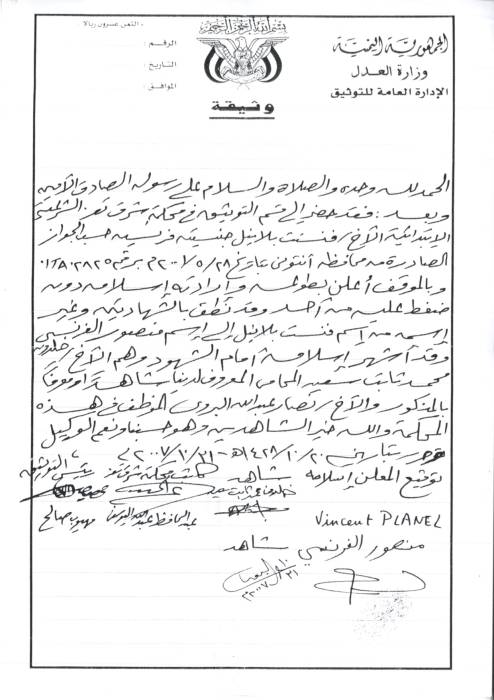 بسم الله الرحمن الرحيم
الجمهورية اليمنية
وزارة العدل
الإدارة العامة للتوثيق
الثمن عشرون ريالا
الرقم :
التاريخ :
الموافق :
وثيقة
الحمد لله وحده والصلاة والسلام على رسوله الصادق الأمين
وبعد : فقد حضر إلى قسم التوثيق في محكمة شرق تعز
الابتدائية الأخ / فنسنت بلانيل جنسيته فرنسية حسب الجواز
الصادر من محافظة بتاريخ ٢٨ / ٥ / ٢٠٠٧م برقم
وبالموقف أعلن بطوعه وإرادته إسلامه دون
ضغط عليه من أحد وقد نطق بالشهادتين وغير
إسمه من اسم فنسنت بلانيل إلى إسم منصور الفرنسي
وقد أشهر إسلامه أمام الشهود وهم الأخ / خلدون
محمد ثابت سعيد المحامي المعروف لدينا شاهداً ومعرفاً
بالمذكور والأخ / عبدالله الموظف في هذه
المحكمة والله خير الشاهدين وهو حسبنا ونعم الوكيل
حرر بتاريخ ٢٠ / ١٠ / ١٤٢٨هـ - ٣١ / ١٠ / ٢٠٠٧م
توقيع المعلن إسلامه شاهد كاتب محكمة شرق تعز رئيس التوثيق
Vincent PLANEL
منصور الفرنسي شاهد